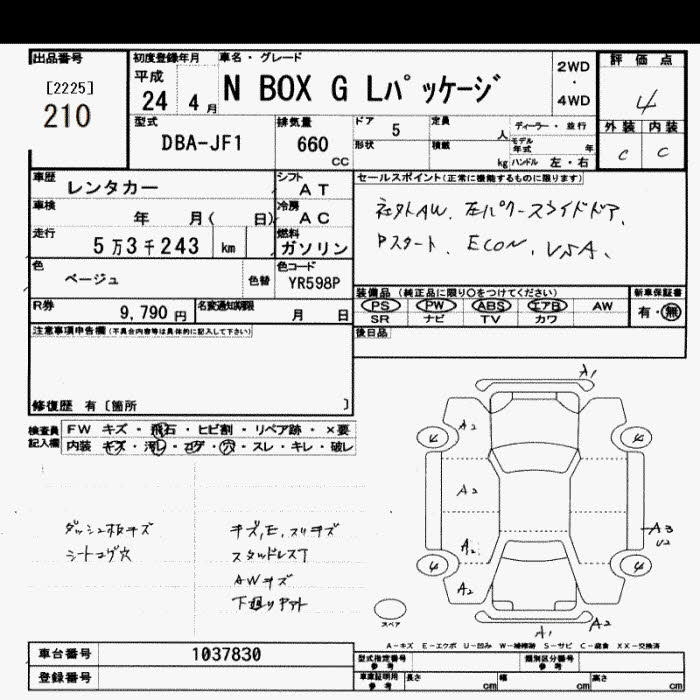 出品番号
[2225]
210
初度登録年月
平成
24 4 月
車名・グレード
N BOX G Lパッケージ
2WD
・
4WD
評価点
4
外装 内装
C C
型式
DBA-JF1
排気量
660
CC
ドア
5
形状
定員
人
積載
kg
ディーラー・並行
モデル年式 年
ハンドル 左・右
車歴 レンタカー
シフト
AT
車検 年 月( 日)
冷房
AC
走行 5万3千243 km
燃料
ガソリン
色 ベージュ 色替
色コード
YR598P
R券 9,790 円
名変通知期限 月 日
セールスポイント(正常に機能するものに限ります)
社外AW、左パワースライドドア、
Pスタート、ECON、VSA、
装備品(純正品に限り○をつけてください)
PS PW ABS エアB AW
SR ナビ TV カワ
新車保証書
有・無
後日品
注意事項申告欄(不具合内容等は具体的に記入して下さい)
修復歴 有〔箇所 〕
検査員
記入欄
FW キズ・飛石・ヒビ割・リペア跡・×要
内装 キズ・汚レ・コゲ・穴・スレ・キレ・破レ
ダッシュ板キズ
シートコゲ穴
キズ,E,スリキズ
スタッドレスT
AWキズ
下廻りサビ
A1
A2
A2
A2
A2
A3
U2
A1
A2
4
4
4
4
スペア
A-キズ E-エクボ U-凹み W-補修跡 S-サビ C-腐食 XX-交換済
車台番号 1037830
登録番号
型式指定番号
参考
類別区分番号
参考
車庫証明用
参考
長さ cm
幅 cm
高さ cm